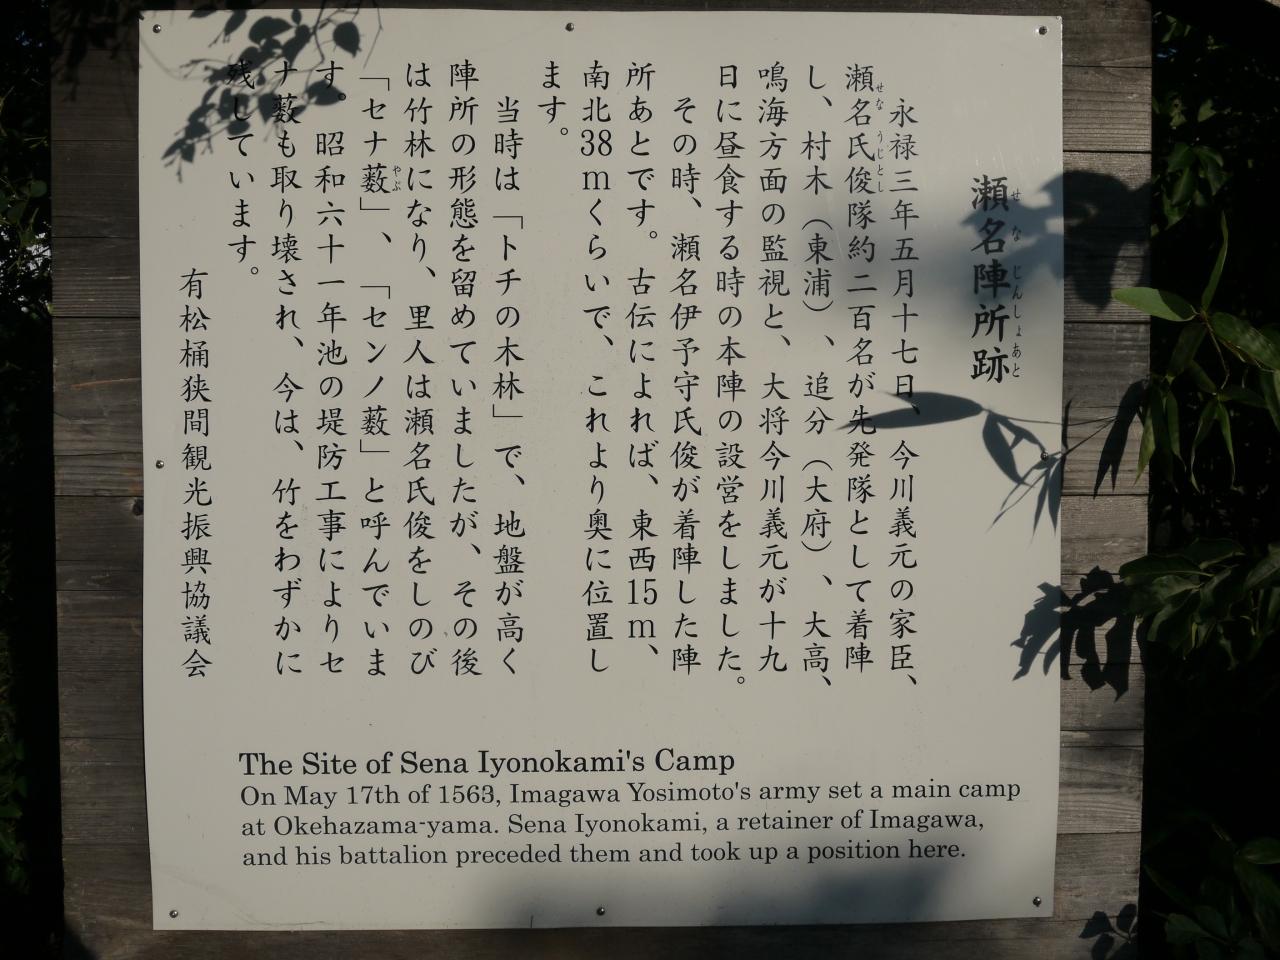 瀬名陣所跡
せな じんしょあと
永禄三年五月十七日、今川義元の家臣、
瀬名氏俊隊約二百名が先発隊として着陣
せな うじとし
し、村木（東浦）、追分（大府）、大高、
鳴海方面の監視と、大将今川義元が十九
日に昼食する時の本陣の設営をしました。
その時、瀬名伊予守氏俊が着陣した陣
所あとです。古伝によれば、東西15ｍ、
南北38ｍくらいで、これより奥に位置し
ます。
当時は「トチの木林」で、地盤が高く
陣所の形態を留めていましたが、その後
は竹林になり、里人は瀬名氏俊をしのび
「セナ藪」、「センノ藪」と呼んでいま
やぶ
す。昭和六十一年池の堤防工事によりセ
ナ藪も取り壊され、今は、竹をわずかに
残しています。
有松桶狭間観光振興協議会
The Site of Sena Iyonokami's Camp
On May 17th of 1563, Imagawa Yosimoto's army set a main camp
at Okehazama-yama. Sena Iyonokami, a retainer of Imagawa,
and his battalion preceded them and took up a position here.